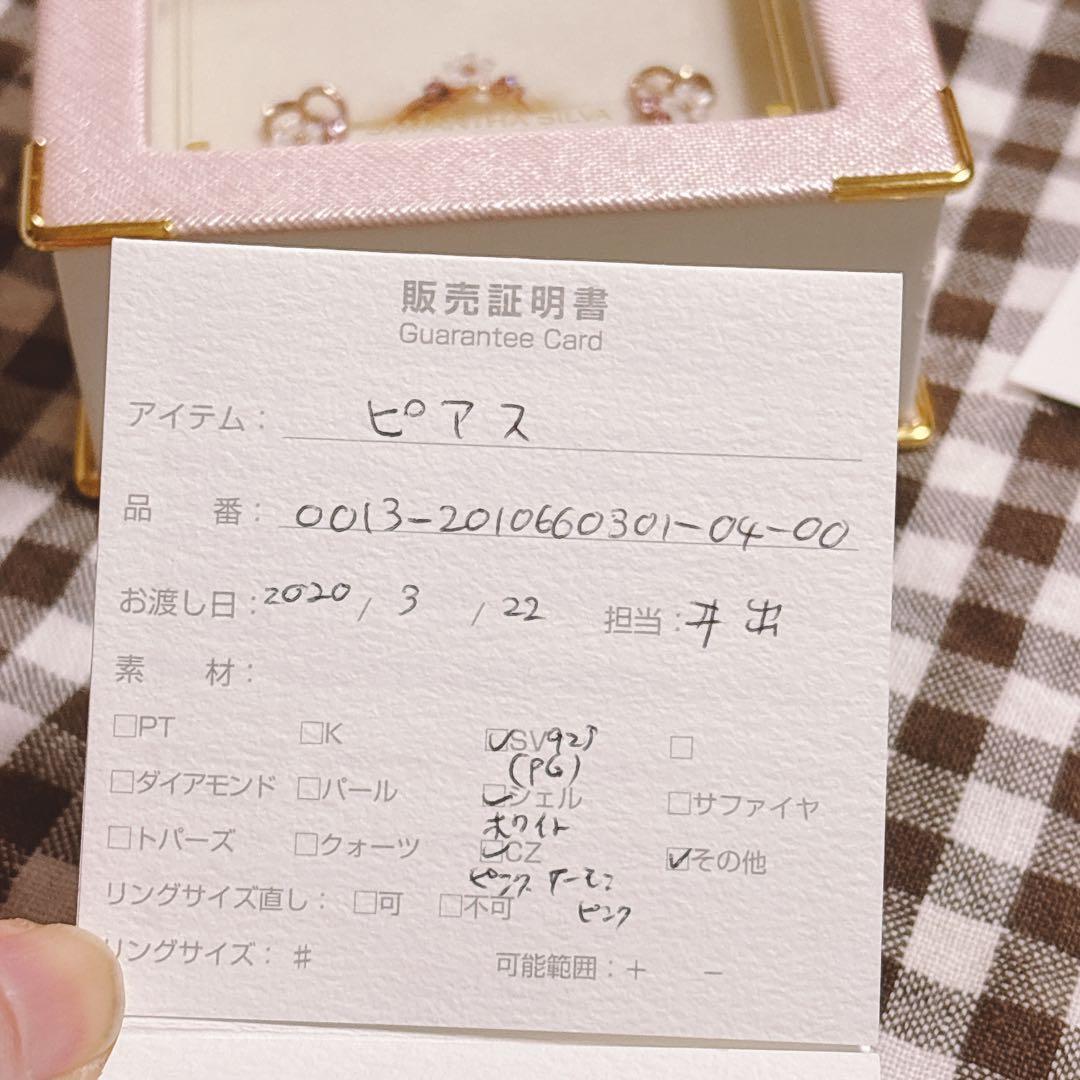 販売証明書
Guarantee Card
アイテム： ピアス
品　番： 0013-2010660301-04-00
お渡し日：2020 / 3 / 22 担当：井出
素　材：
□PT □K ☑SV925 □
(PG)
□ダイアモンド □パール ☑シェル □サファイヤ
ホワイト
□トパーズ □クォーツ ☑CZ ☑その他
ピンク サーモン
リングサイズ直し： □可 □不可 ピンク
リングサイズ： # 可能範囲：＋ －